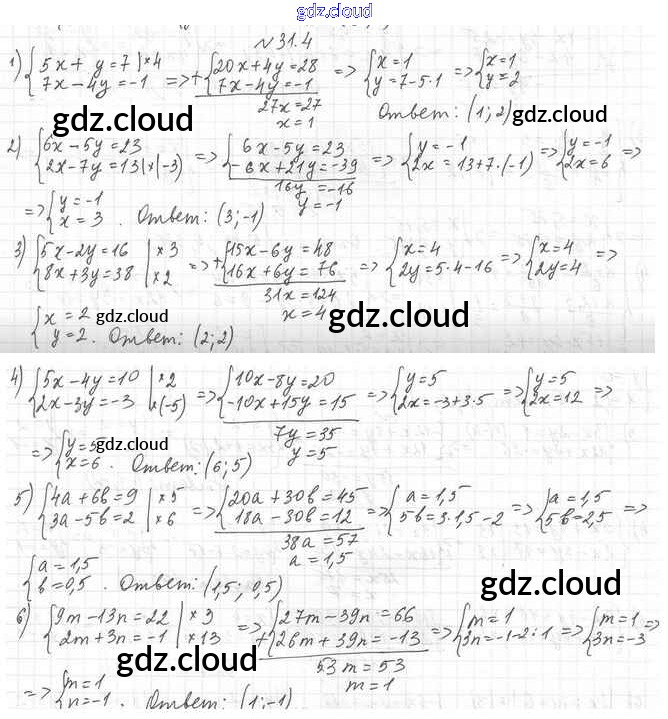 gdz.cloud
№31.4
1) {5x + y = 7 | ×4 {7x − 4y = −1 => +{20x + 4y = 28 {7x − 4y = −1 => {x = 1 {y = 7 − 5·1 => {x = 1 {y = 2
27x = 27
x = 1
Ответ: (1; 2)
gdz.cloud
gdz.cloud
2) {6x − 5y = 23 {2x − 7y = 13 | ×(−3) => {6x − 5y = 23 {−6x + 21y = −39 => {y = −1 {2x = 13 + 7·(−1) => {y = −1 {2x = 6 =>
16y = −16
y = −1
=> {y = −1 {x = 3 . Ответ: (3; −1)
gdz.cloud
3) {5x − 2y = 16 | ×3 {8x + 3y = 38 | ×2 => +{15x − 6y = 48 {16x + 6y = 76 => {x = 4 {2y = 5·4 − 16 => {x = 4 {2y = 4 =>
31x = 124
x = 4
gdz.cloud
{x = 2 {y = 2. Ответ: (2; 2)
gdz.cloud
4) {5x − 4y = 10 | ×2 {2x − 3y = −3 | ×(−5) => {10x − 8y = 20 {−10x + 15y = 15 => {y = 5 {2x = −3 + 3·5 => {y = 5 {2x = 12 =>
7y = 35
y = 5
=> {y = 5 {x = 6 . Ответ: (6; 5)
gdz.cloud
5) {4a + 6b = 9 | ×5 {3a − 5b = 2 | ×6 => {20a + 30b = 45 {18a − 30b = 12 => {a = 1,5 {5b = 3·1,5 − 2 => {a = 1,5 {5b = 2,5 =>
38a = 57
a = 1,5
{a = 1,5 {b = 0,5 . Ответ: (1,5; 0,5)
gdz.cloud
6) {9m − 13n = 22 | ×3 {2m + 3n = −1 | ×13 => +{27m − 39n = 66 {26m + 39n = −13 => {m = 1 {3n = −1 − 2·1 => {m = 1 {3n = −3 =>
53m = 53
m = 1
gdz.cloud
=> {m = 1 {n = −1 . Ответ: (1; −1)